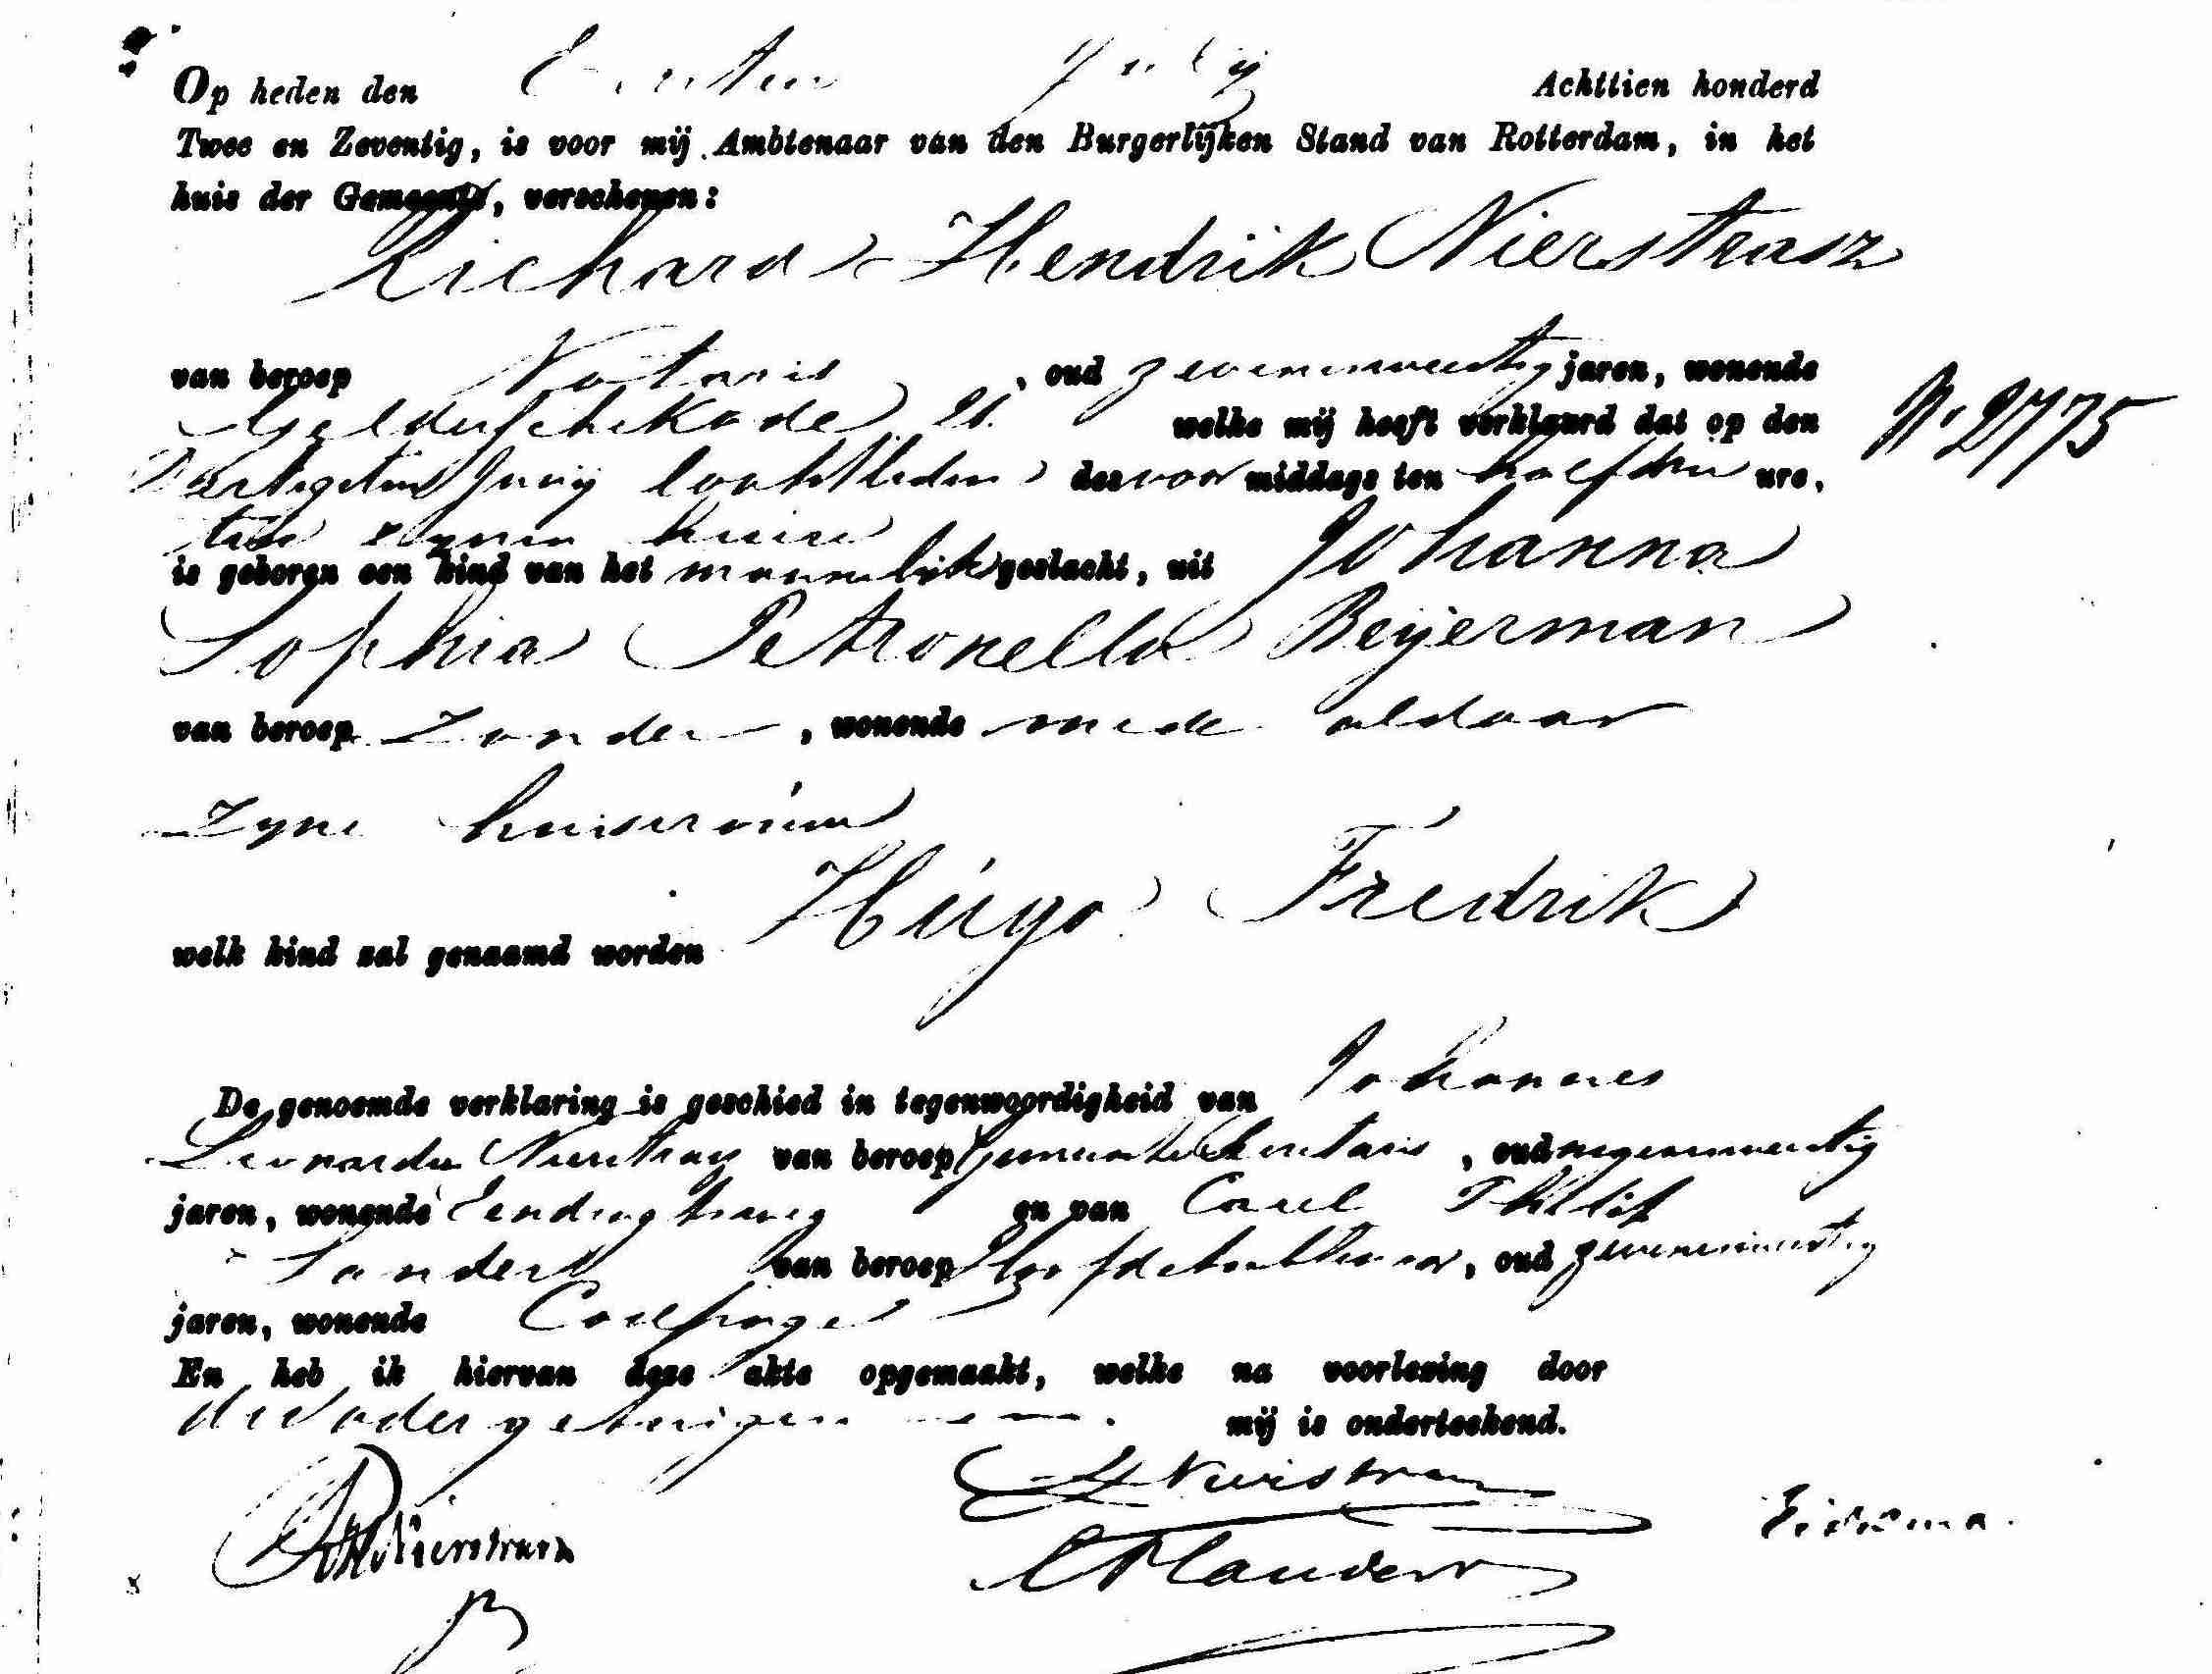 Op heden den Eersten July Achttien honderd
Twee en Zeventig, is voor mij Ambtenaar van den Burgerlijken Stand van Rotterdam, in het
huis der Gemeente, verschenen:
Richard Hendrik Nierstrasz
van beroep Notaris, oud zevenentwintig jaren, wonende
Gelderschekade welke mij heeft verklaard dat op den
N. 2775
Dertigsten Junij laatstleden des voor middags ten half drie ure,
ten zynen huize
is geboren een kind van het mannelijk geslacht, uit Johanna
Sophia Petronella Beijerman
van beroep Zonder, wonende mede aldaar
Zyne huisvrouw
welk kind zal genaamd worden Hugo Fredrik
De genoemde verklaring is geschied in tegenwoordigheid van Johannes
Leonardus Nierstrasz van beroep Gemeente Secretaris, oud negenentwintig
jaren, wonende Eendragtsweg en van Carel Philip
Sanders van beroep, oud zevenentwintig
jaren, wonende Coolsingel
En heb ik hiervan deze akte opgemaakt, welke na voorlezing door
de vader getuigen en mij is onderteekend.
RHNierstrasz
JLNierstrasz
CPSanders